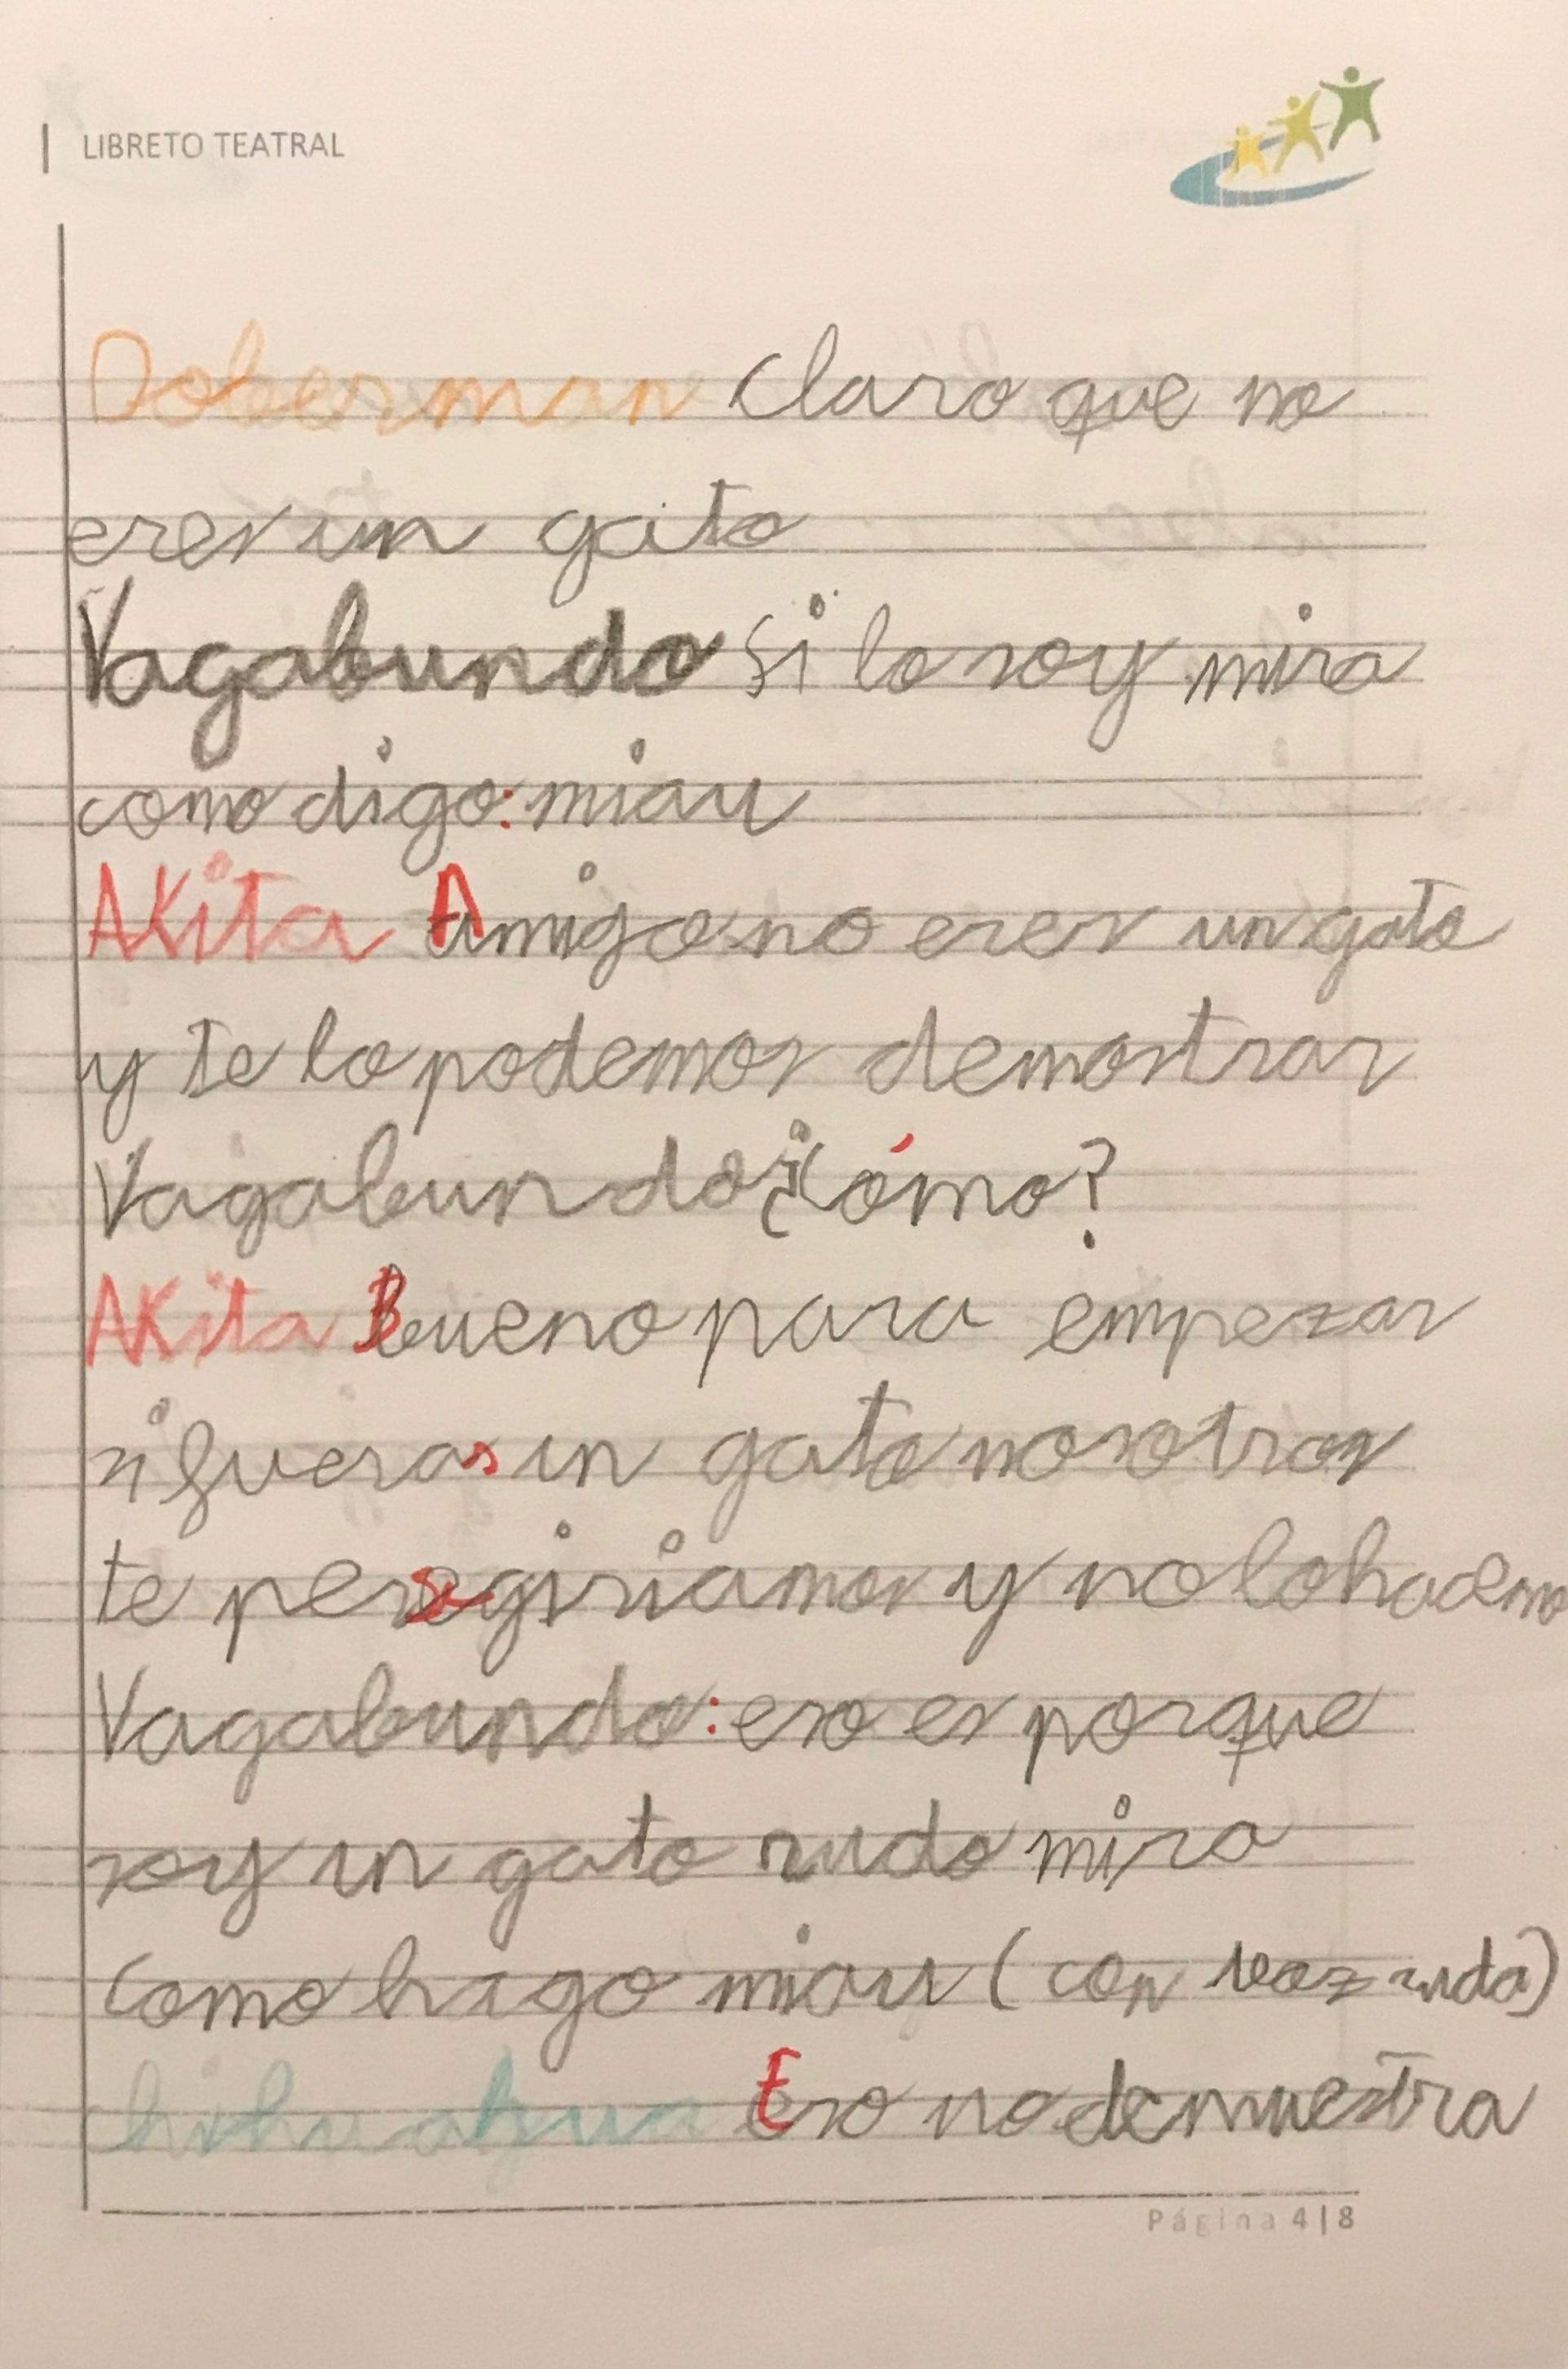 LIBRETO TEATRAL
Doberman Claro que no
eres un gato
Vagabundo Si lo soy mira
como digo: miau
AKita Amigo no eres un gato
y te lo podemos demostrar
Vagabundo ¿Cómo?
AKita Bueno para empezar
si fueras un gato nosotros
te persegiriamos y no lo hacemo
Vagabundo: eso es porque
soy un gato rudo mira
como hago miau (con voz ruda)
chihuahua Eso no demuestra
Página 4|8